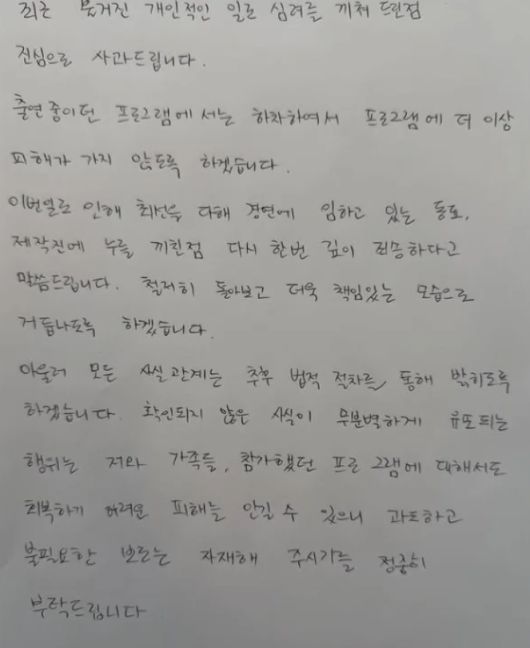 최근 불거진 개인적인 일로 심려를 끼쳐 드린점
진심으로 사과드립니다.
출연중이던 프로그램에서는 하차하여서 프로그램에 더 이상
피해가 가지 않도록 하겠습니다.
이번일로 인해 최선을 다해 경연에 임하고 있는 동료,
제작진에 누를 끼친점 다시 한번 깊이 죄송하다고
말씀드립니다. 철저히 돌아보고 더욱 책임있는 모습으로
거듭나도록 하겠습니다.
아울러 모든 사실관계는 추후 법적 절차를 통해 밝히도록
하겠습니다. 확인되지 않은 사실이 무분벽하게 유포되는
행위는 저와 가족들, 참가했던 프로그램에 대해서도
회복하기 어려운 피해를 안길 수 있으니 과도하고
불필요한 보도는 자재해 주시기를 정중히
부탁드립니다